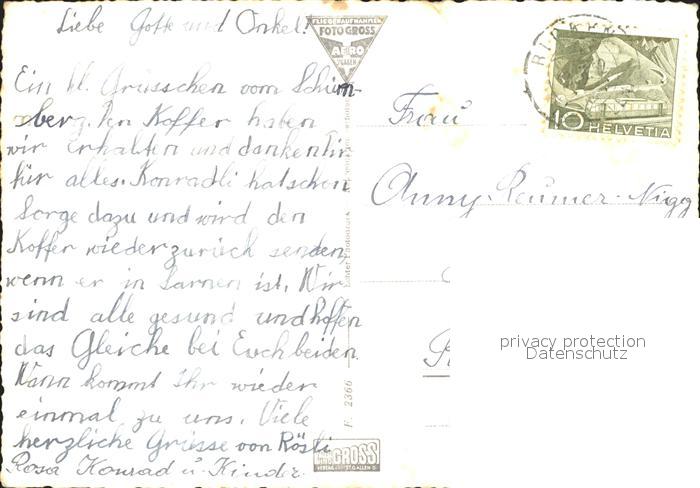 Liebe Gotte und Onkel!
Ein kl. Grüsschen vom Schim-
berg. den Koffer haben
wir Erhalten und danken Dir
für alles. Konradli hat schon
Sorge dazu und wird den
Koffer wieder zurück senden
wenn er in Sarnen ist. Wir
sind alle gesund und hoffen
das Gleiche bei Euch beiden.
Wann kommt Ihr wieder
einmal zu uns. Viele
herzliche Grüsse von Rösli
Rosa Konrad u. Kinder
FLIEGERAUFNAHMEN
FOTO GROSS
AERO
ST. GALLEN
Echter Photodruck
F. 2366
GROSS
ST. GALLEN
Frau
Anny
Nigg
10 HELVETIA
privacy protection
Datenschutz